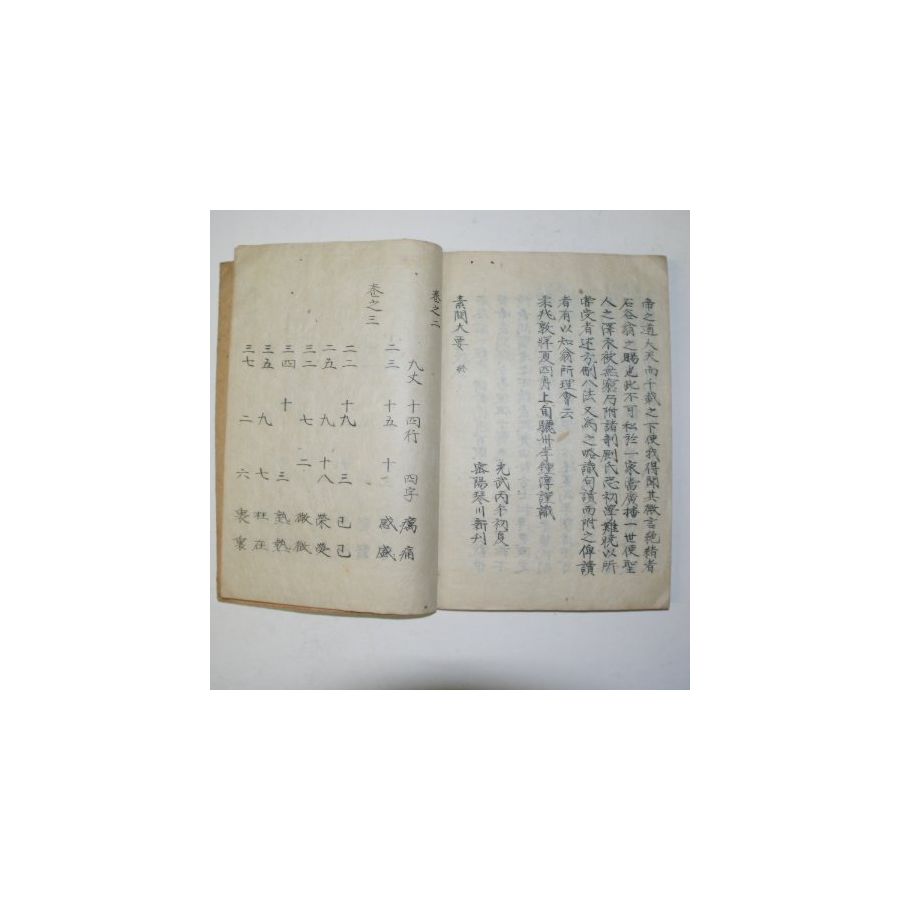 帝之道大矣而千載之下使我得聞其微言緒者
石谷翁之賜也此不可私於一家當廣播一世使聖
人之澤衣被無窮局附諸剞劂氏恐初學難曉以所
嘗受者述方刪八法又為之略識句讀而附之俾讀
者有以知翁所理會云
柔兆敦牂夏四月上旬驪州李鍾淳謹識
光武丙午初夏
密陽琴川新刊
素問大要 終
卷之二
九丈 十四行 四字 癘 痛
二三 十五 十二 感 盛
卷之三
二二 十九 三 已 己
二五 九 十八 榮 憂
三二 七 二 微 微
三四 十 三 塾 熱
三五 九 七 枉 在
三七 二 六 裏 裏